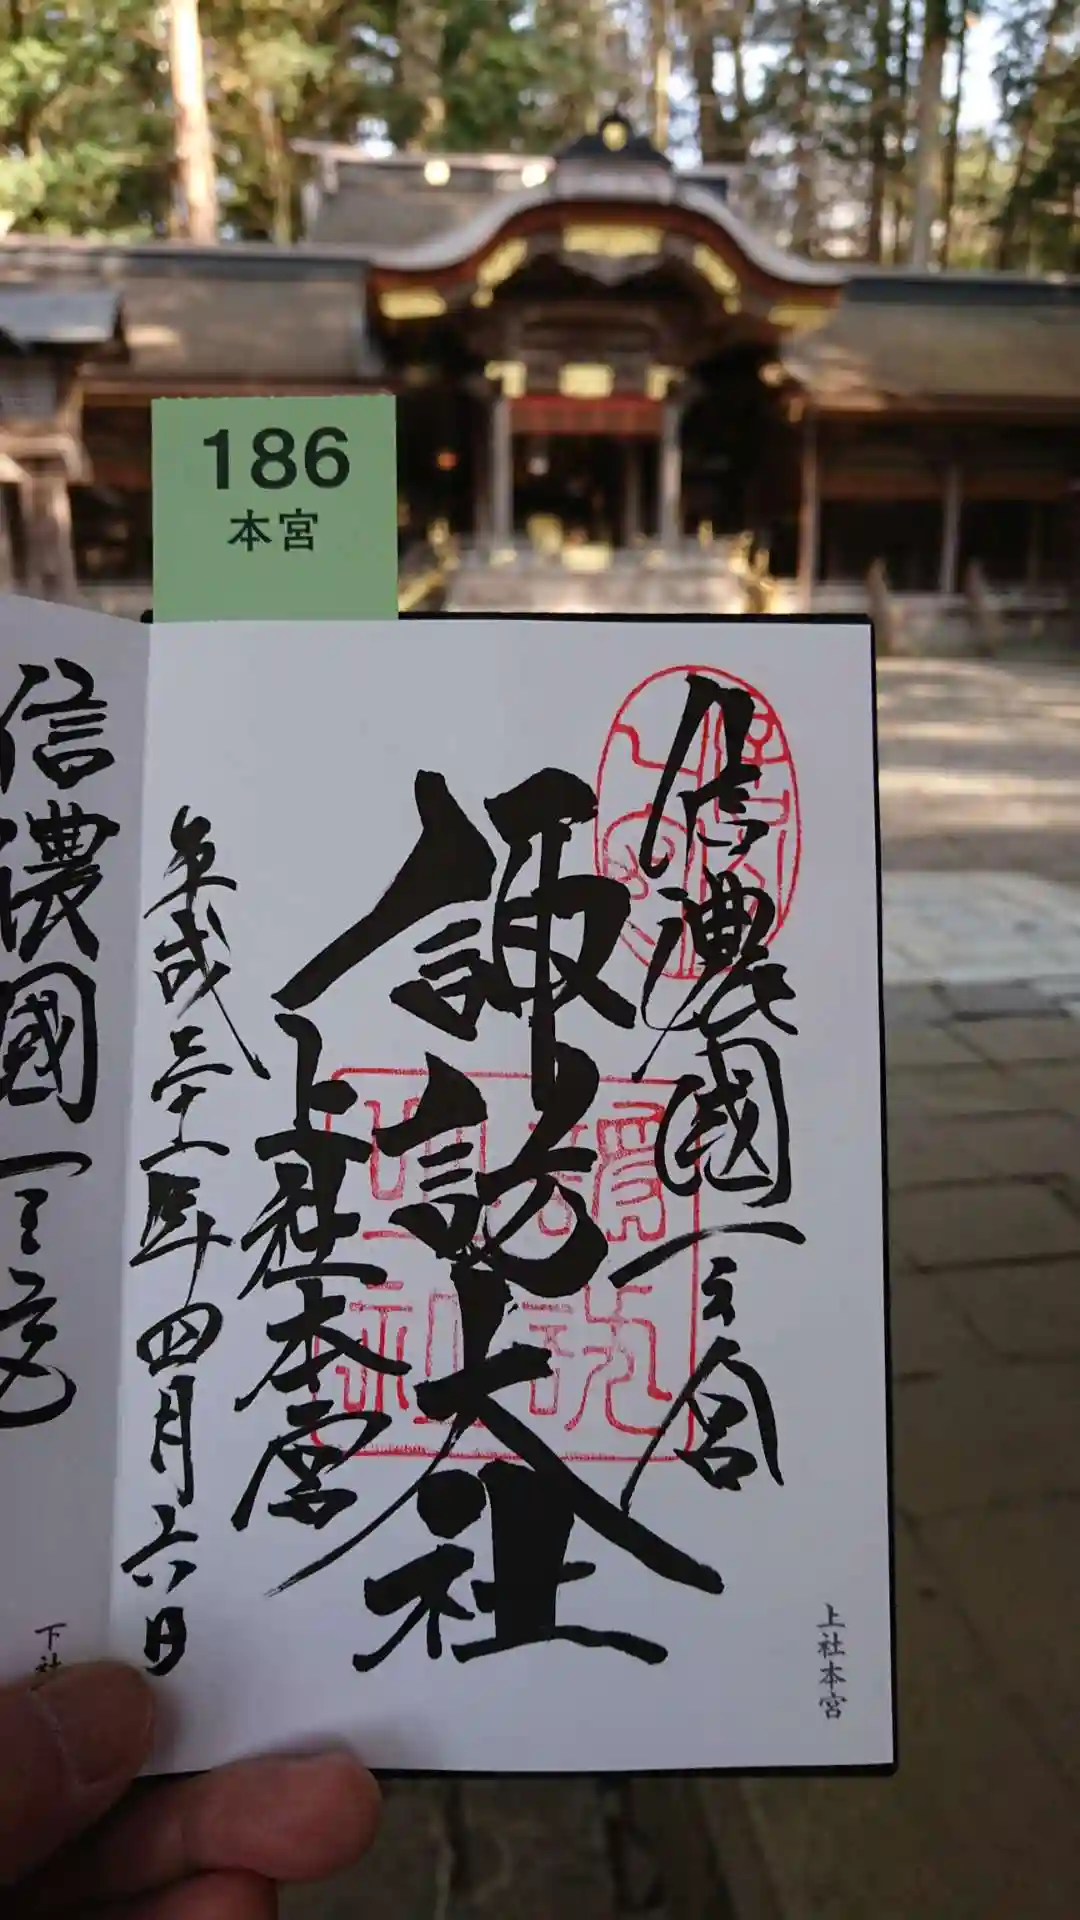 186
本宮
信濃國一之宮
諏訪大社
上社本宮
平成三十一年四月六日
上社本宮
信濃國一之宮
下社